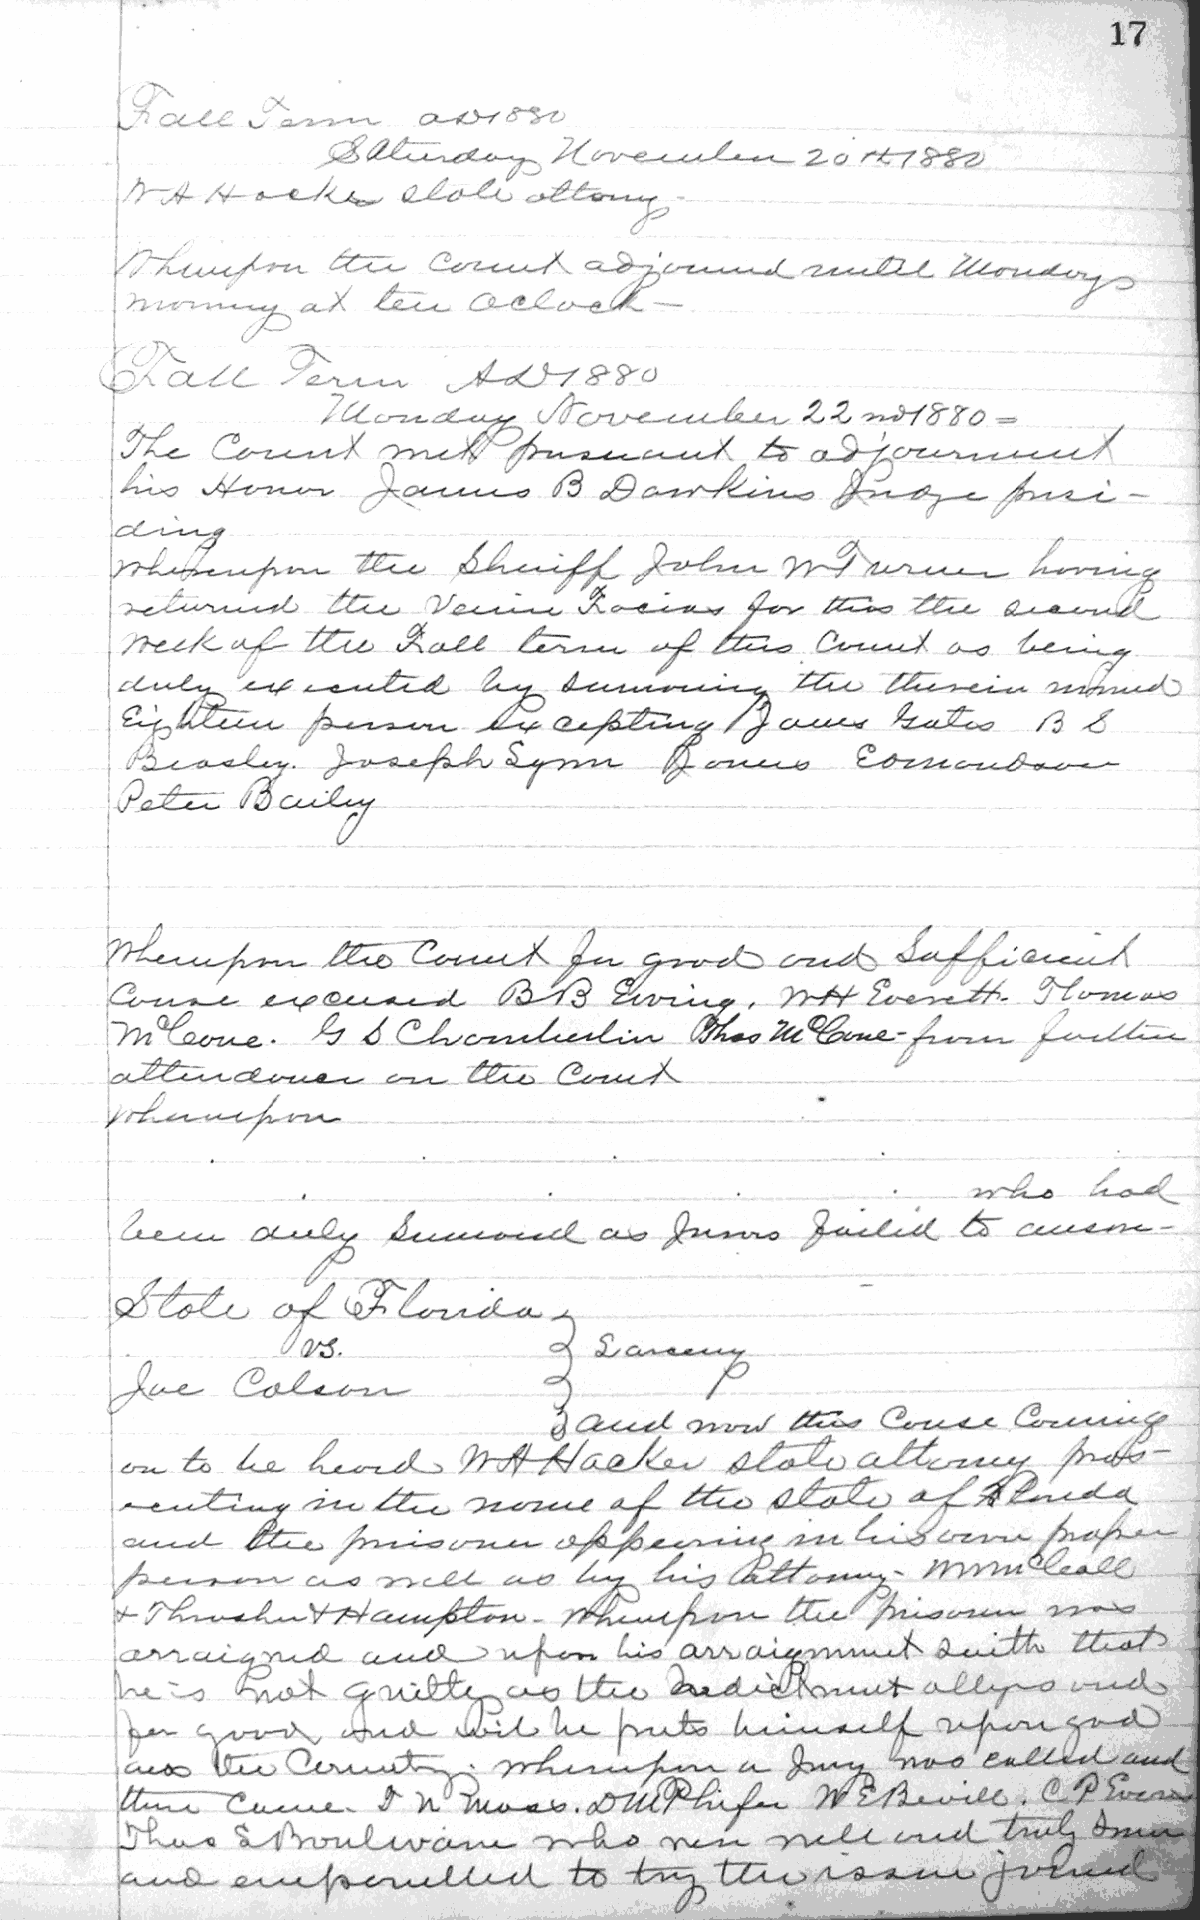 17
Fall Term AD 1880
Saturday November 20th 1880
W A Hocker state attorny -
Whereupon the Court adjourned until Monday
morning at ten Oclock —
Fall Term AD 1880
Monday November 22nd 1880 =
The Court met pursuant to adjournment
his Honor James B Dawkins Judge presi-
ding
whereupon the Sheriff John W Turner having
returned the Venire Facias for this the second
week of the Fall term of this Court as being
duly executed by sumoning the therein named
Eighteen person excepting James Gates B S
Beasley. Joseph Synn James Edmondson
Peter Bailey
Whereupon the Court for good and Sufficient
Cause excused B B Ewing, W H Everett. Thomas
McCone. G S Chamberlin Thos McCone - from further
attendance on the Court
Whereupon
who had
been duly Sumoned as Jurors failed to answer-
State of Florida
vs. Larceny
Joe Colson
and now this Cause Coming
on to be heard W A Hacker state attorney pros-
ecuting in the name of the state of Florida
and the prisoner appearing in his own proper
person as well as by his attorny - W W McCall
& Thrasher & Hampton - Whereupon the prisoner was
arraigned and upon his arraignment saith that
he is not guilty as the Indictment alleges and
for good and evil he puts himself upon god
and the County. Whereupon a Jury was called and
there came. T N Moss. D M Phifer W E Bevill. C P Evers
Thos S Boulware who were well and truly sworn
and empanelled to try the issue joined